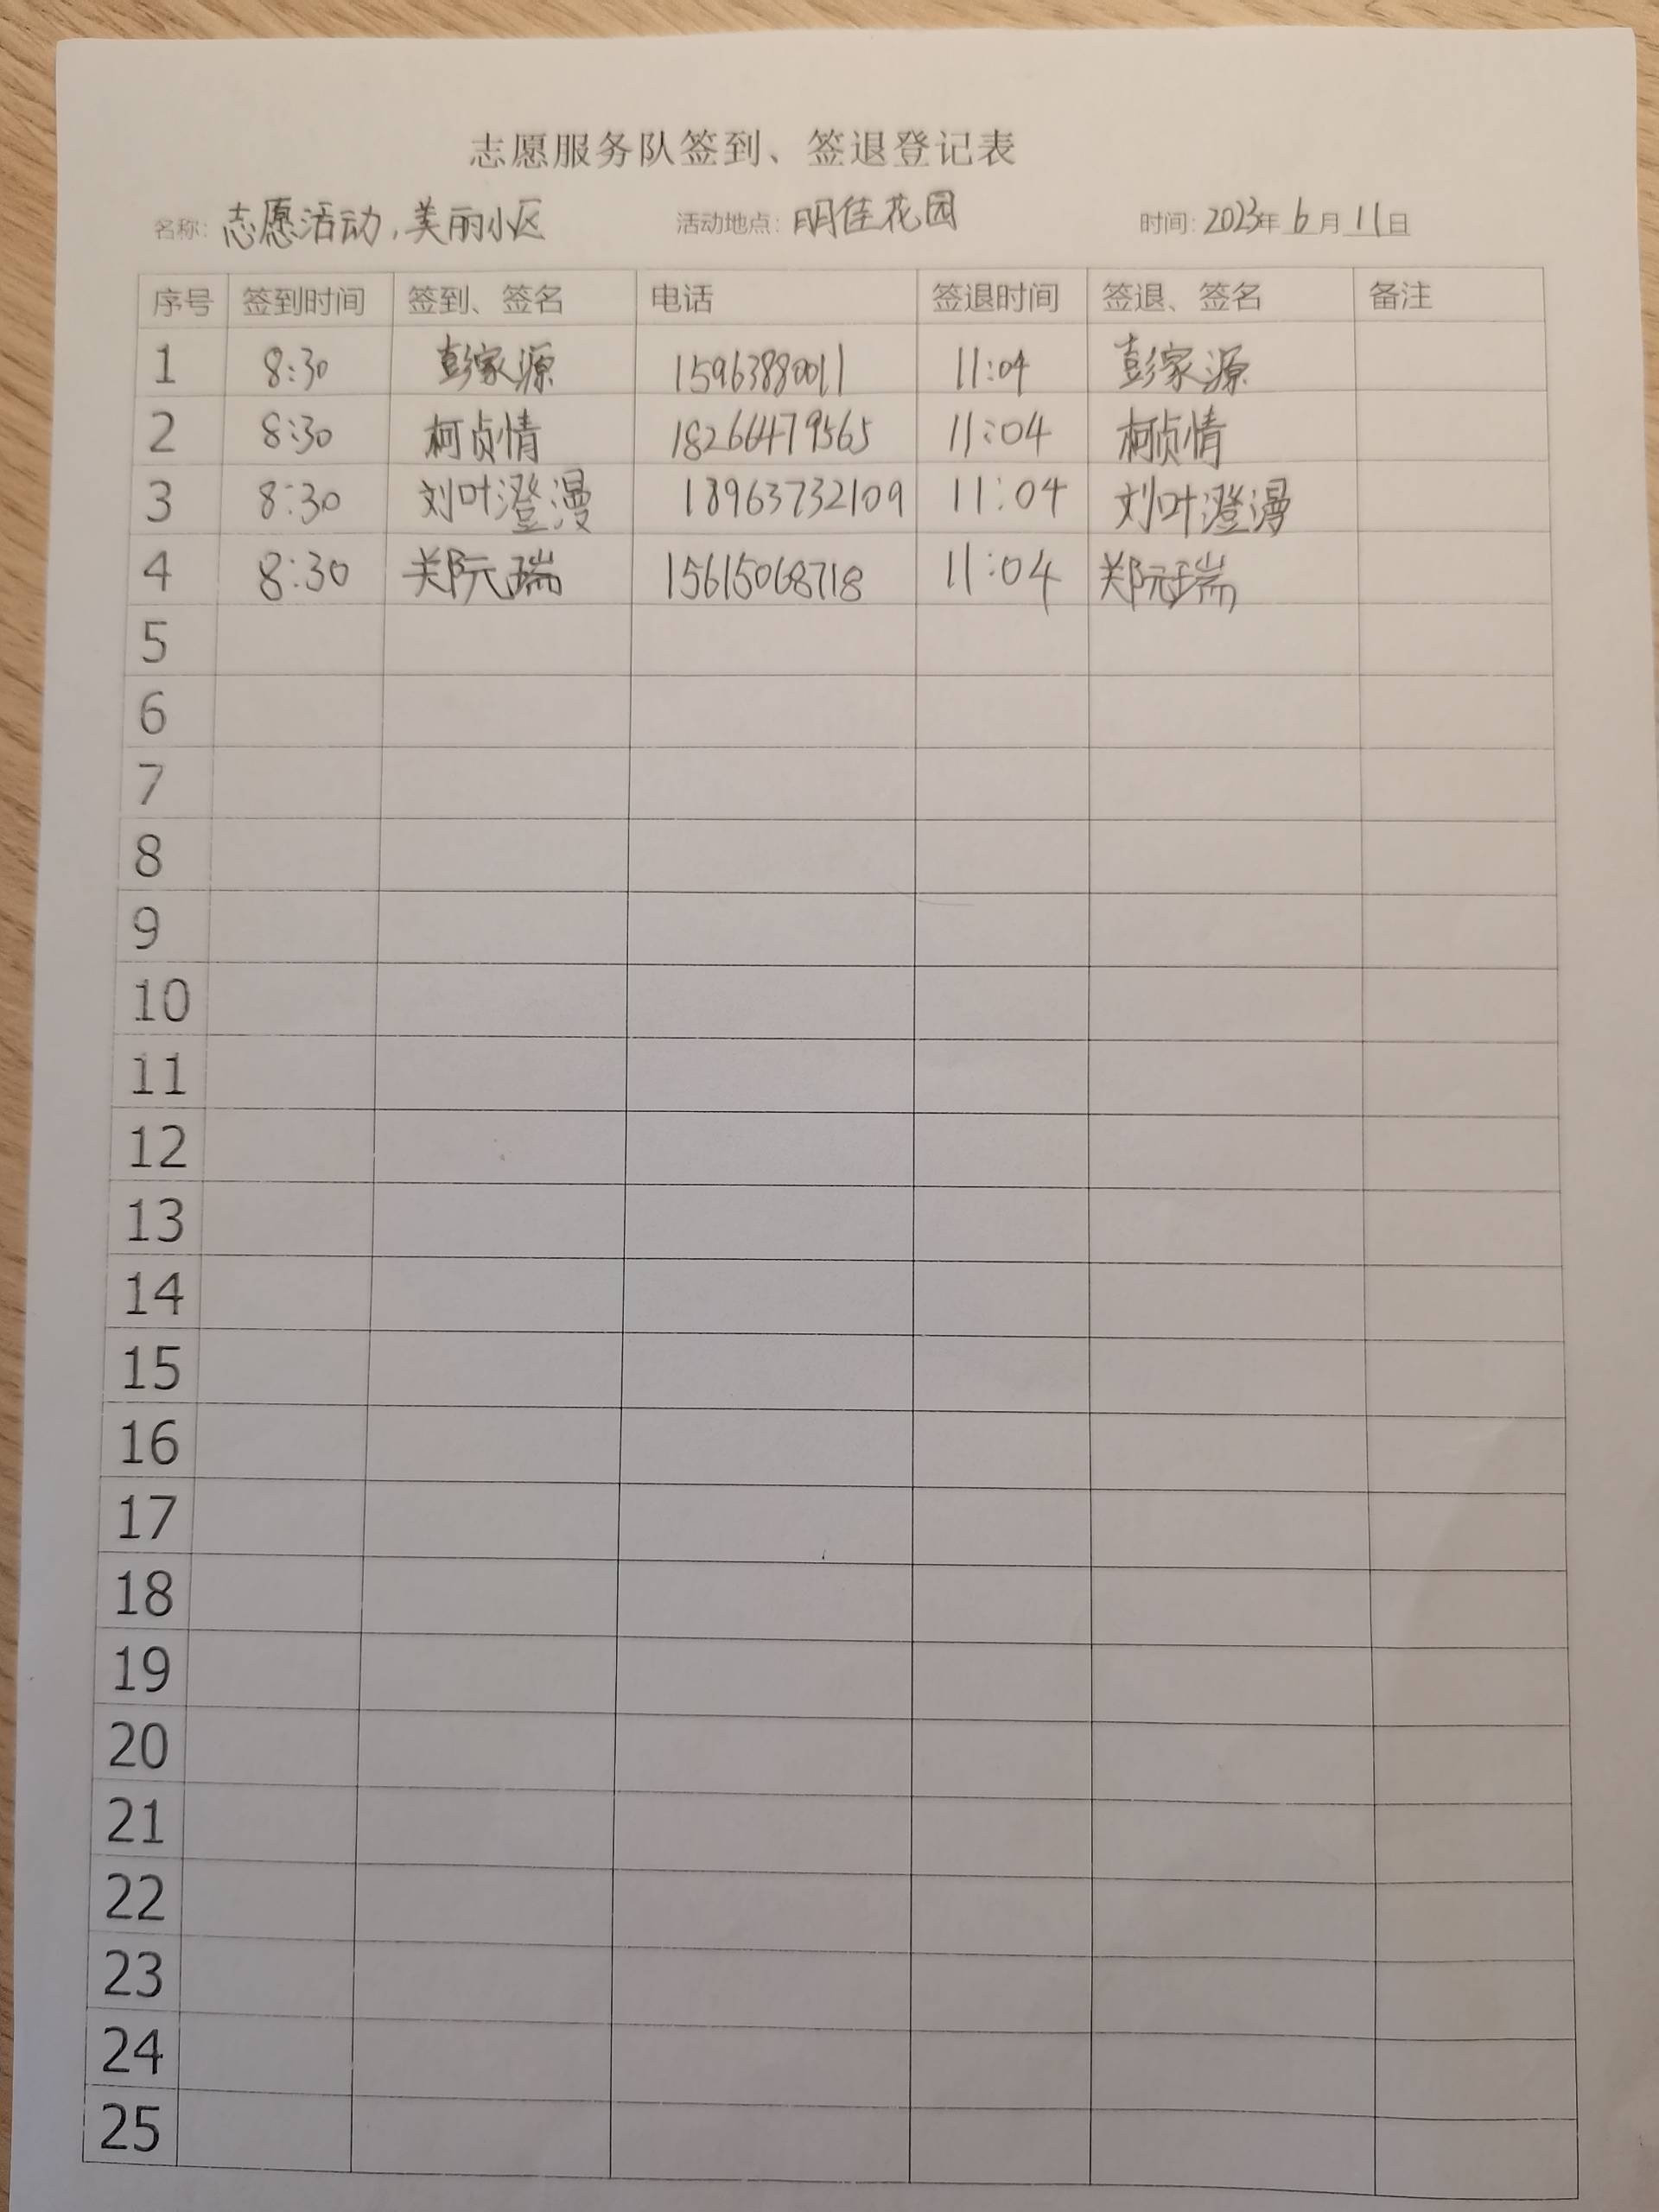 志愿服务队签到、签退登记表
名称: 志愿活动,美丽小区 活动地点: 明佳花园 时间: 2023年 6 月 11 日
序号 签到时间 签到、签名 电话 签退时间 签退、签名 备注
1 8:30 彭家源 15963880011 11:04 彭家源
2 8:30 柯贞情 18266479565 11:04 柯贞情
3 8:30 刘叶澄漫 18963732109 11:04 刘叶澄漫
4 8:30 郑阮瑞 15615068718 11:04 郑阮瑞
5
6
7
8
9
10
11
12
13
14
15
16
17
18
19
20
21
22
23
24
25